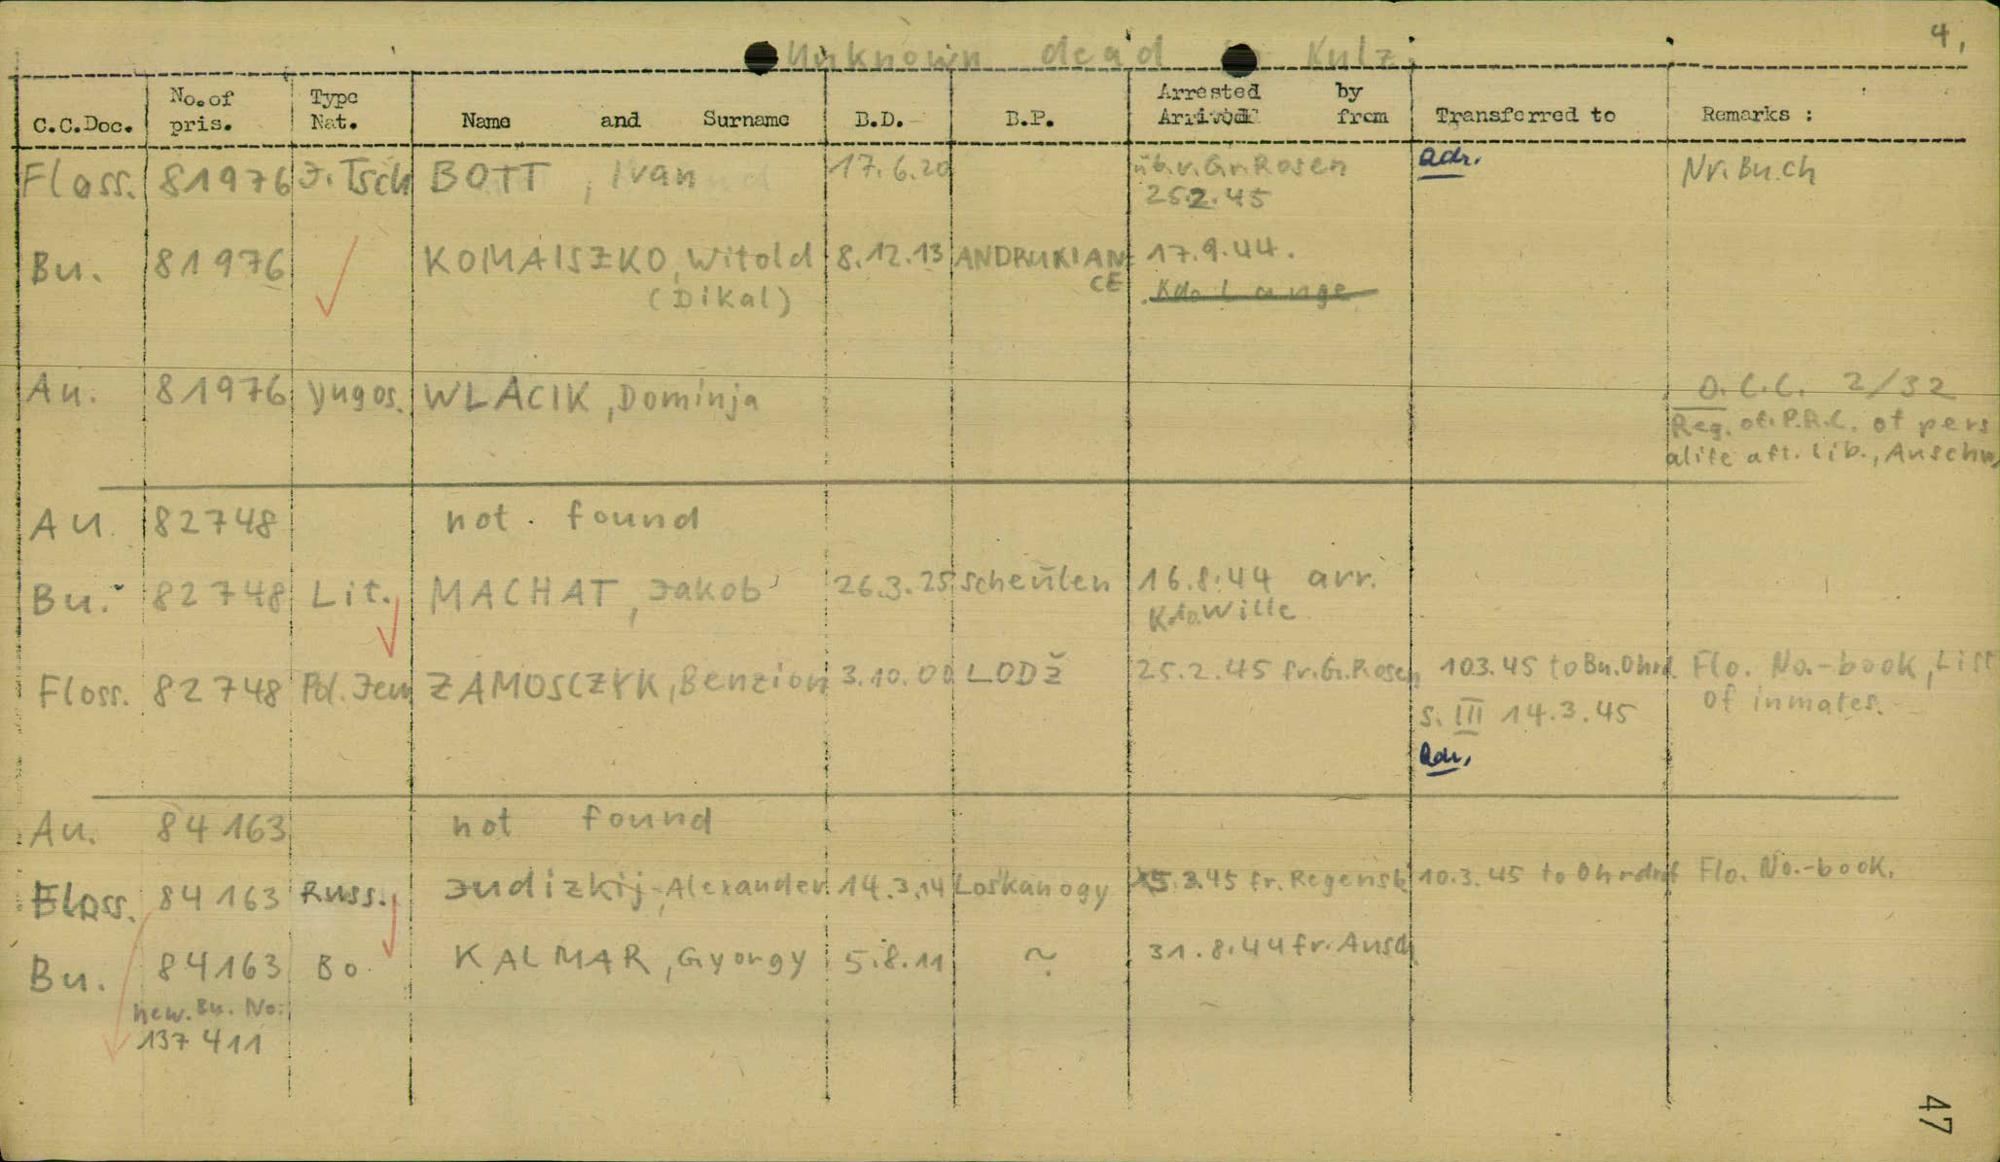 4,
Unknown dead Kulz.
C.C.Doc. No.of pris. Type Nat. Name and Surname B.D. B.P. Arrested by Arrived from Transferred to Remarks :
Floss. 81976 J. Tsch BOTT, Ivan 17.6.20 üb.v.Gr.Rosen adr. Nr.Buch
25.2.45
Bu. 81976 KOMAISZKO, Witold 8.12.13 ANDRUKIANCE 17.9.44.
(Dikal) Kdo Lange
Au. 81976 Yugos. WLACIK, Dominja O.C.C. 2/32
Reg. of P.R.C. of pers
alife aft. lib., Auschw.
Au. 82748 not found
Bu. 82748 Lit. MACHAT, Jakob 26.3.25 Scheulen 16.8.44 arr.
Kdo. Wille
Floss. 82748 Pol. Jew ZAMOSCZYK, Benzion 3.10.00 LODŽ 25.2.45 fr.Gr.Rosen 10.3.45 to Bu.Ohrd Flo. No.-book, List
S. III 14.3.45 of inmates.
adr.
Au. 84163 not found
Floss. 84163 Russ. Judizkij, Alexander 14.3.14 Loskanogy 3.45 fr. Regensb 10.3.45 to Ohrdruf Flo. No.-book.
Bu. 84163 Bo KALMAR, Gyorgy 5.8.11 ? 31.8.44 fr. Ausch
new. Bu. No:
137411
47